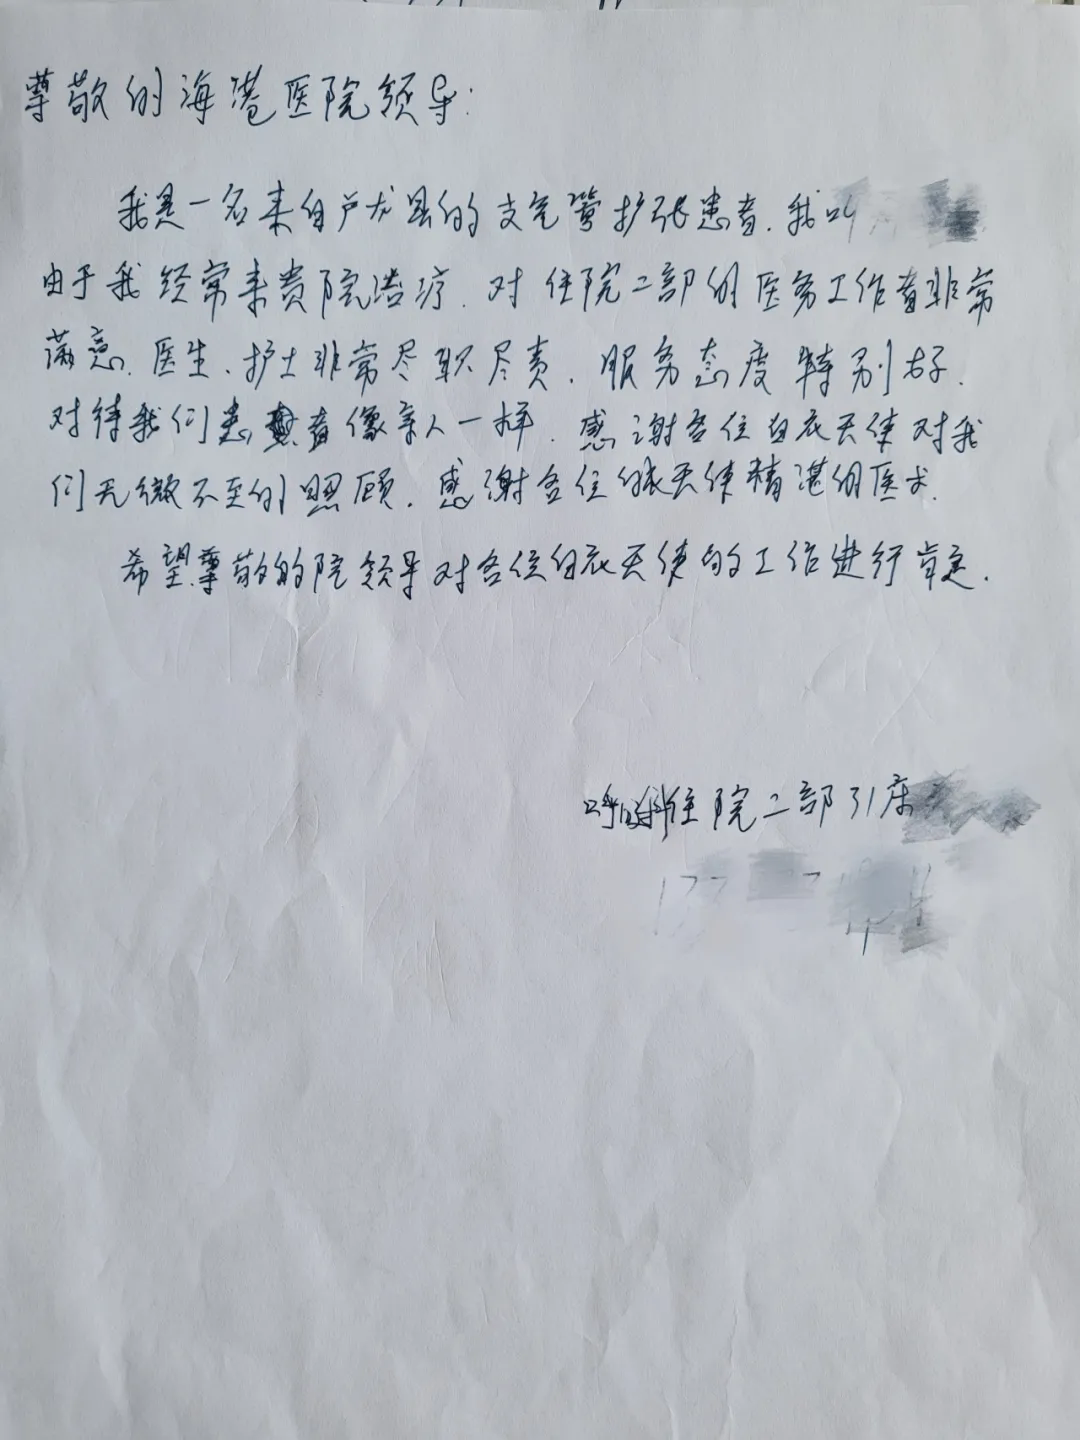 尊敬的海港医院领导:
我是一名来自卢龙县的支气管扩张患者.我叫
由于我经常来贵院治疗.对住院二部的医务工作者非常
满意.医生、护士非常尽职尽责.服务态度特别好.
对待我们患者像亲人一样.感谢各位白衣天使对我
们无微不至的照顾.感谢各位白衣天使精湛的医术.
希望尊敬的院领导对各位白衣天使的工作进行肯定.
呼吸科住院二部31床